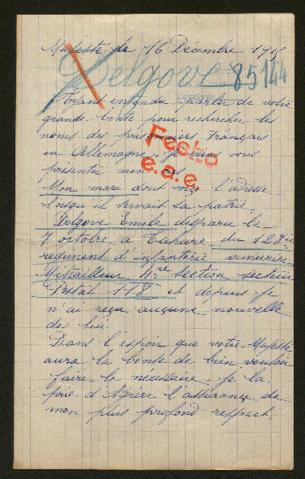 Majesté le 16 Décembre 1915
Delgove 85144
Ayant entendu parler de votre
grande bonté pour rechercher les
noms des prisonniers français
en Allemagne, je viens vous
présenter
Fecho
e.a.e.
Mon mari dont voici l'adresse
lorsqu'il servait la patrie.
Delgove Emile disparu le
7 octobre à Tahure du 128e
régiment d'infanterie armurier
Mitrailleur 1re Section secteur
Postal 118 et depuis je
n'ai reçu aucune nouvelle
de lui.
Dans l'espoir que votre Majesté
aura la bonté de bien vouloir
faire le nécessaire je la
prie d'Agréer l'assurance de
mon plus profond respect.